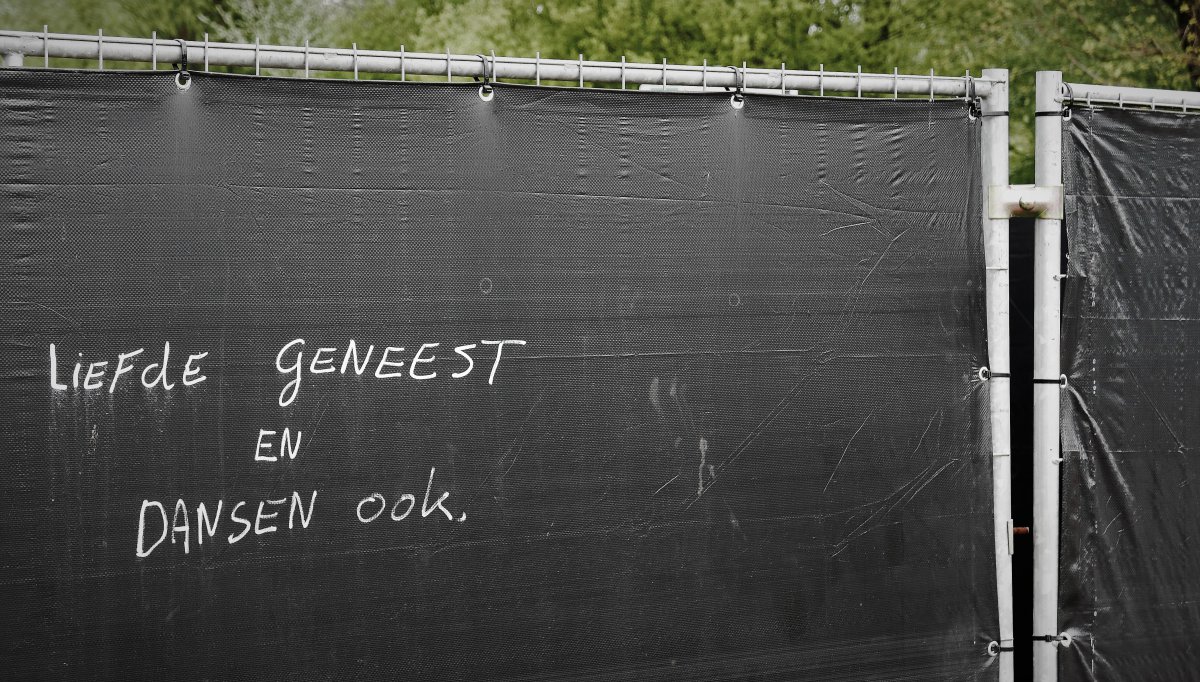 LiEFdE GENEEST
EN
DANSEN ook.